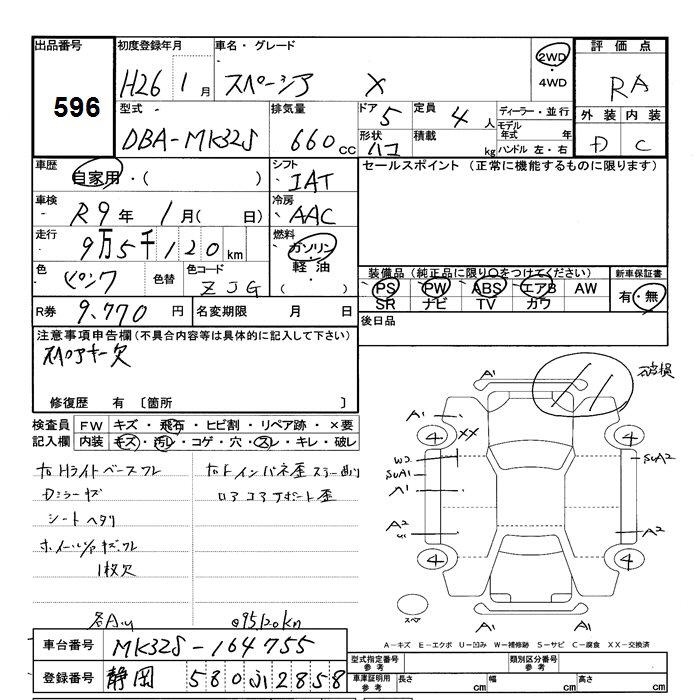 出品番号 初度登録年月 車名・グレード 評価点
596
H26 1月 スペーシア X
2WD・4WD
RA
型式 排気量 ドア 定員 ディーラー・並行 外装 内装
DBA-MK32S 660cc 5 4人 モデル年式 年
形状 積載 kg ハンドル 左・右
ハコ
D C
車歴 自家用・( ) シフト IAT セールスポイント (正常に機能するものに限ります)
車検 R9年 1月( 日) 冷房 AAC
走行 9万5千120km 燃料 ガソリン・軽油
色 ピンク 色替 色コード ZJG
装備品(純正品に限り○をつけてください) 新車保証書
PS PW ABS エアB AW 有・無
SR ナビ TV カワ
R券 9,770円 名変期限 月 日 後日品
注意事項申告欄(不具合内容等は具体的に記入して下さい)
スペアキー欠
修復歴 有 〔箇所 〕
検査員記入欄 FW キズ・飛石・ヒビ割・リペア跡・×要
内装 キズ・汚レ・コゲ・穴・スレ・キレ・破レ
シートヘタリ
1枚欠
@95120km
車台番号 MK32S-164755
登録番号 静岡 580 ふ 2858
A1 破損
A1 XX
4 4
W2
SUA1 SUA2
A1
A2 A2
4 4
スペア A1 A1
A-キズ E-エクボ U-凹み W-補修跡 S-サビ C-腐食 XX-交換済
型式指定番号 参考 類別区分番号 参考
車庫証明用 参考 長さ cm 幅 cm 高さ cm